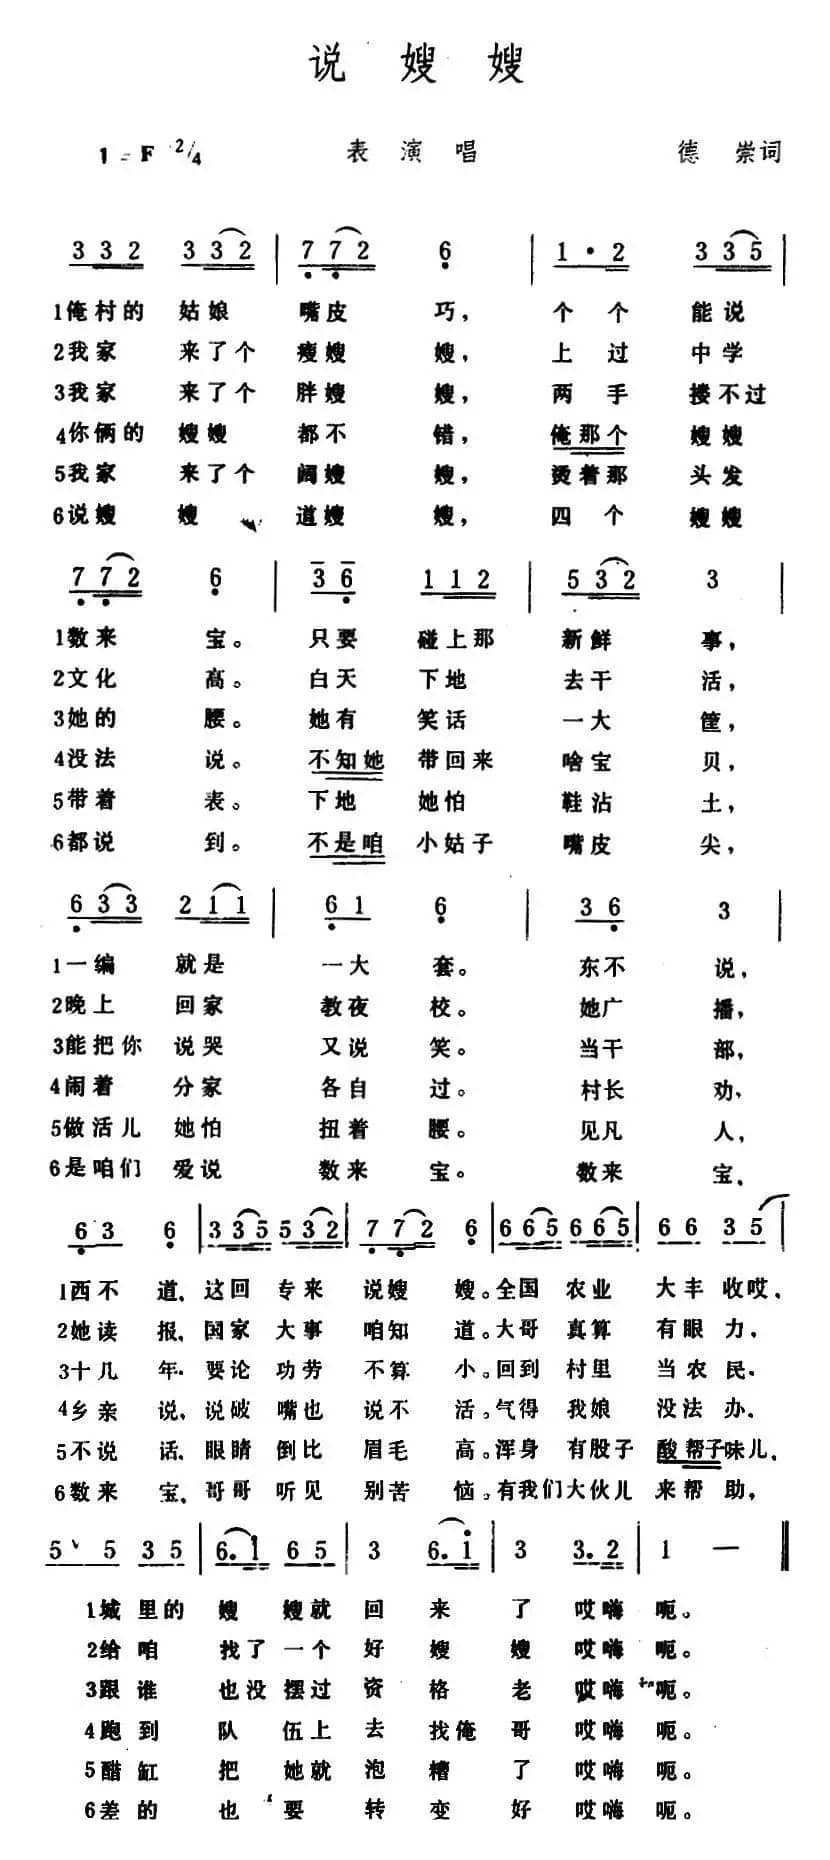 说嫂嫂
1=F 2/4 表演唱 德崇词
3 3 2 3 3 2 | 7 7 2 6 | 1·2 3 3 5 |
1俺村的 姑娘 嘴皮 巧, 个个 能说
2我家 来了个 瘦嫂 嫂, 上过 中学
3我家 来了个 胖嫂 嫂, 两手 搂不过
4你俩的 嫂嫂 都不 错, 俺那个 嫂嫂
5我家 来了个 阔嫂 嫂, 烫着那 头发
6说嫂 嫂 道嫂 嫂, 四个 嫂嫂
7 7 2 6 | 3 6 1 1 2 | 5 3 2 3 |
1数来 宝。 只要 碰上那 新鲜 事,
2文化 高。 白天 下地 去干 活,
3她的 腰。 她有 笑话 一大 筐,
4没法 说。 不知她 带回来 啥宝 贝,
5带着 表。 下地 她怕 鞋沾 土,
6都说 到。 不是咱 小姑子 嘴皮 尖,
6 3 3 2 1 1 | 6 1 6 | 3 6 3 |
1一编 就是 一大 套。 东不 说,
2晚上 回家 教夜 校。 她广 播,
3能把你 说哭 又说 笑。 当干 部,
4闹着 分家 各自 过。 村长 劝,
5做活儿 她怕 扭着 腰。 见凡 人,
6是咱们 爱说 数来 宝。 数来 宝,
6 3 6 | 3 3 5 5 3 2 | 7 7 2 6 | 6 6 5 6 6 5 | 6 6 3 5 |
1西不 道, 这回 专来 说嫂 嫂。全国 农业 大丰 收哎,
2她读 报, 国家 大事 咱知 道。大哥 真算 有眼 力,
3十几 年. 要论 功劳 不算 小。回到 村里 当农 民.
4乡亲 说, 说破 嘴也 说不 活。气得 我娘 没法 办.
5不说 话, 眼睛 倒比 眉毛 高。浑身 有股子 酸帮子味儿,
6数来 宝, 哥哥 听见 别苦 恼。有我们 大伙儿 来帮 助,
5 5 3 5 | 6.i 6 5 | 3 6.i | 3 3.2 | 1 — ‖
1城里的 嫂嫂就 回来 了 哎嗨 呃。
2给咱 找了一个 好嫂 嫂 哎嗨 呃。
3跟谁 也没摆过 资格 老 哎嗨 呃。
4跑到 队伍上 去找俺 哥 哎嗨 呃。
5醋缸 把她就 泡糟 了 哎嗨 呃。
6差的 也要 转变 好 哎嗨 呃。